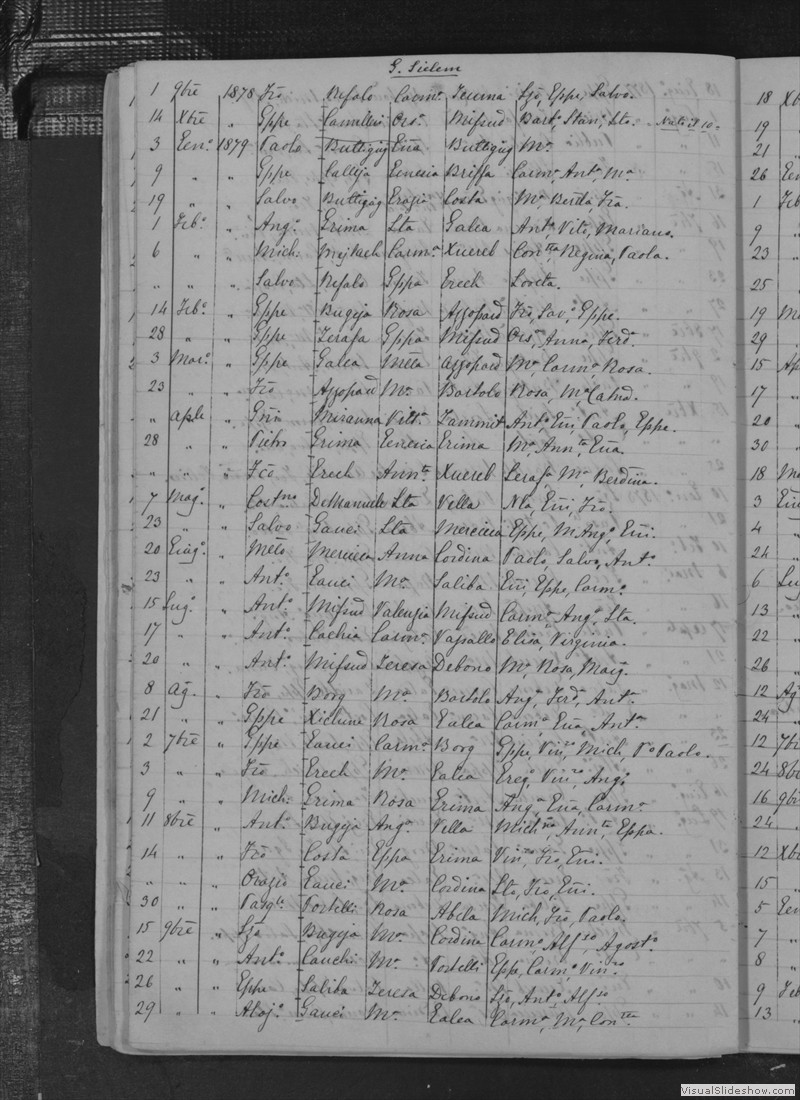 G. Sielem
1 9bre 1878 Fco Refalo Carma Tecuma Sza, Eppe, Salvo.
14 Xbre " Gppe Camilleri Orsa Mifsud Barta, Stanа, Sto.
3 Eeno 1879 Paolo Buttigieg Eña Buttigieg Ma
9 " " Gppe Calleja Eenesia Briffa Carma, Anta, Ma
19 " " Salvo Buttigieg Erazia Costa Ma Berda, Fca.
1 Febo " Ango Grima Sta Galea Anta, Vito, Mariano.
6 " " Miche Mejlach Carma Xuereb Contta, Regina, Paola.
" " " Salvo Refalo Gppa Erech Loreta.
14 Febo " Gppe Bugeja Rosa Azzopard Fco, Savo, Gppe.
28 " " Gppe Zerafa Gppa Mifsud Orsa, Anna, Ferdo
3 Maro " Gppe Galea Meta Azzopard Ma Carma, Rosa.
23 " " Fco Azzopard Ma Bartolo Rosa, Ma Catnd.
" Aple " Mizanna Vitta Zammit Anta, Eni, Paolo, Eppe.
28 " " Pietro Grima Eenesia Erima Ma Annta, Eña.
" " " Fco Erech Annta Xuereb Serafa Ma Berdina.
7 Mago " Costno DeManuele Sta Vella Nta, Eni, Fco.
23 " " Salvo Gauci Sta Mercieca Eppe, M. Ango, Eni.
20 Eiugo " Meto Mercieca Anna Cordina Paolo, Salvo, Anto
23 " " Anto Eauci Ma Saliba Eni, Eppe, Carmo
15 Lugo " Anto Mifsud Valenzia Mifsud Carma, Ango, Sta.
17 " " Anto Cachia Carma Vassallo Elisa, Virginia.
20 " " Anto Mifsud Teresa Debono Ma Rosa, Marg.
8 Ago. " Fco Borg Ma Bartolo Ango, Ferdo, Anta
21 " " Gppe Xiclune Rosa Ealea Carma, Eña, Anta
2 7bre " Gppe Eauci Carma Borg Gppe, Vino, Mich, Po Paolo.
3 " " Fco Erech Ma Ealea Erego, Vino, Ango
9 " " Miche Grima Rosa Erima Anga, Eña, Carma
11 8bre " Anto Bugeja Anga Vella Michna, Annta, Eppa.
14 " " Fco Costa Eppa Erima Vino, Fco, Eni.
" " " Orazio Eauci Ma Cordina Sto, Fco, Eni.
30 " " Pasqle Portelli Rosa Abela Mich, Fco, Paolo
15 9bre " Sza Bugeja Ma Cordina Carmo, Alfso, Agosto
22 " " Anto Cauchi Ma Portelli Eppe, Carmo, Vino
26 " " Eppe Saliba Teresa Debono Sto, Anto, Alfso
29 " " Aloj. Gauci Ma Ealea Carma, Ma, Contta
18 Xb
19 "
21 "
26 Een
1 Feb
9 "
23 "
25 "
19 Ma
29 "
15 Ap
17 "
20 "
30 "
18 Ma
3 Eiu
4 "
24 "
6 Lu
13 "
22 "
26 "
12 Ag
24 "
12 7br
24 8br
16 9br
24 "
12 Xb
15 "
5 Een
7 "
8 "
9 Feb
13 "
VisualSlideshow.com